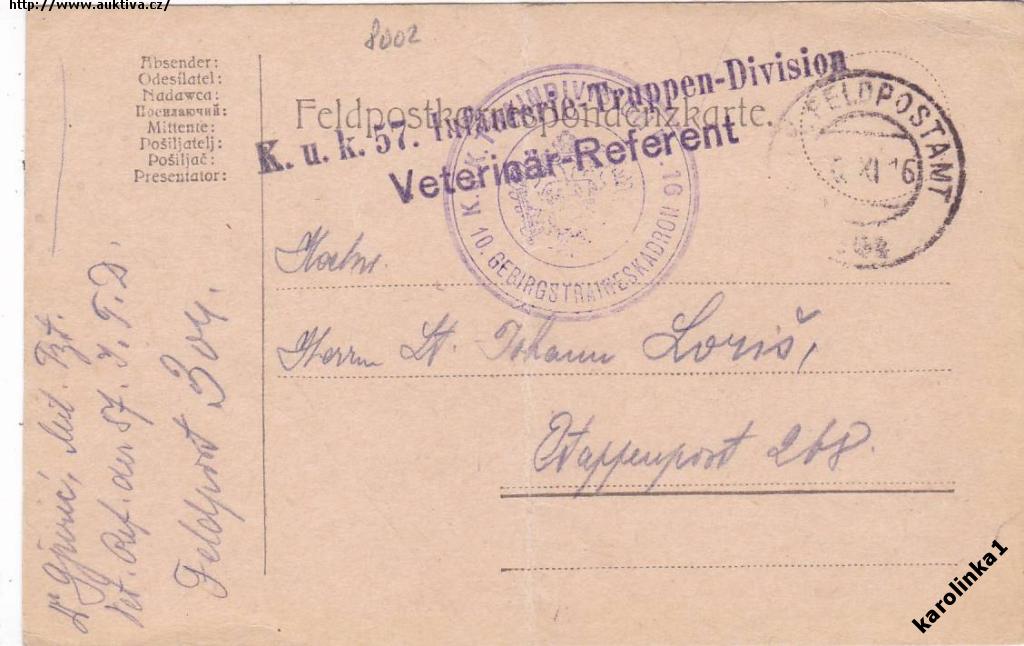 http://www.auktiva.cz/
8002
Absender:
Odesílatel:
Nadawca:
Посилаючий:
Mittente:
Pošiljatelj:
Pošiljač:
Presentator:
Feldpostkorrespondenzkarte.
K. u. k. 57. Infanterie-Truppen-Division
Veterinär-Referent
K. K.
10. GEBIRGSTRAINESKADRON 16
FELDPOSTAMT
XI 16
304
Herrn Lt. Johann Loriš,
Etappenpost 268.
Mil. Tzt.
Vet. Ref. der 57. I. T. D.
Feldpost 304.
karolinka1